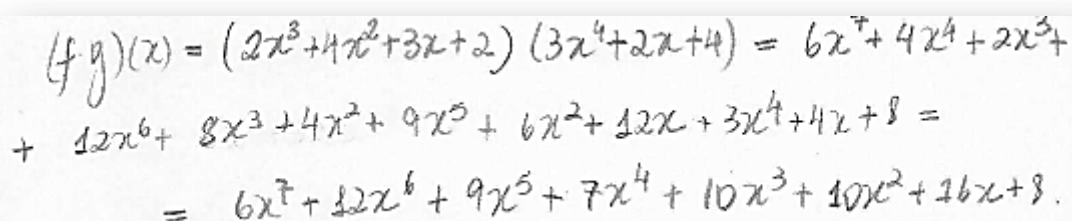 (f·g)(x) = (2x³+4x²+3x+2) (3x⁴+2x+4) = 6x⁷+ 4x⁴+2x³+
+ 12x⁶+ 8x³+4x²+ 9x⁵+ 6x²+ 12x + 3x⁴+4x+8 =
= 6x⁷+ 12x⁶+ 9x⁵+ 7x⁴+ 10x³+ 10x²+16x+8.